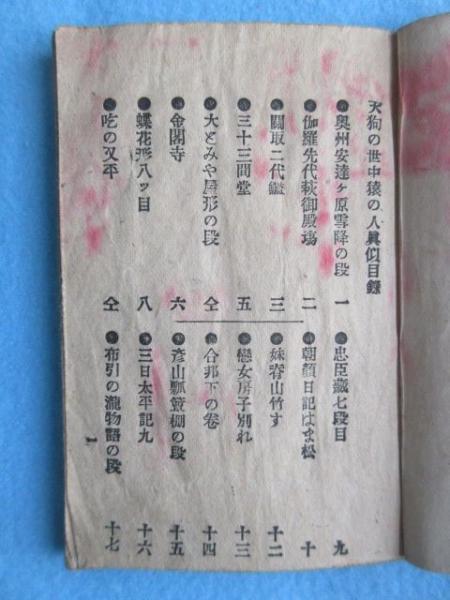 天狗の世中猿の人真似目録
●奥州安達ヶ原雪降の段 一
●伽羅先代萩御殿場 二
●關取二代鑑 三
●三十三間堂 五
●大とみや屋形の段 仝
●金閣寺 六
●蝶花形八ッ目 八
●吃の又平 仝
●忠臣藏七段目 九
●朝顔日記はま松 十
●妹脊山竹す 十二
●戀女房子別れ 十三
●合邦下の卷 十四
●彦山瓢簞棚の段 十五
●三日太平記九 十六
●布引の瀧物語の段 十七
1